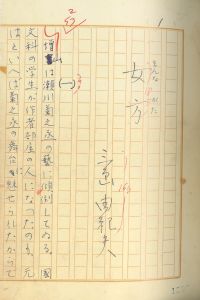 女方
をんながた
三島由紀夫
(一)
増山は瀬川菊之丞の藝に傾倒してゐる。國
文科の学生が作者部屋の人になつたのも、元
はといへば菊之丞の舞台に魅せられたからで